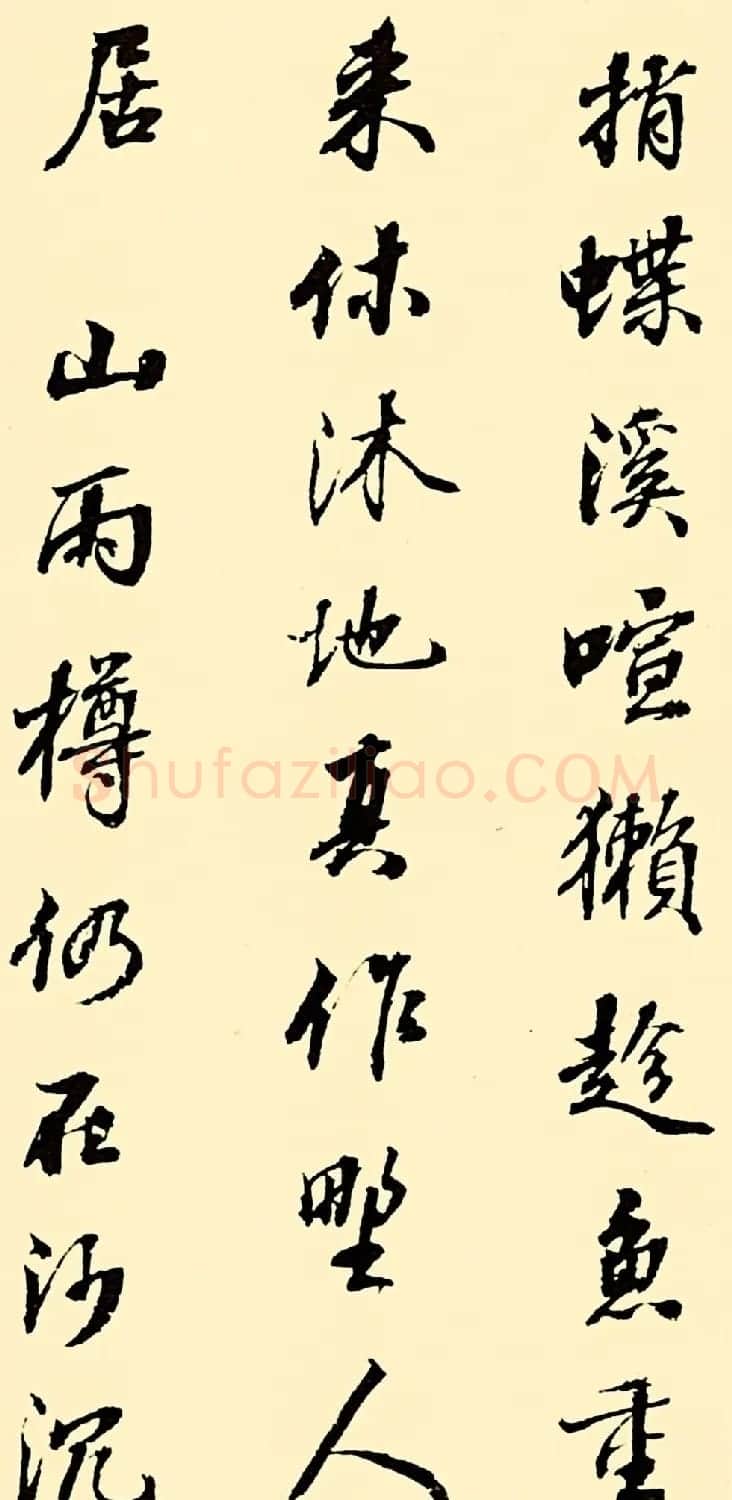 捎蝶溪喧獺趂魚重
来休沐地真作野人
居 山雨樽仍在沙沉
Shufaziliao.COM